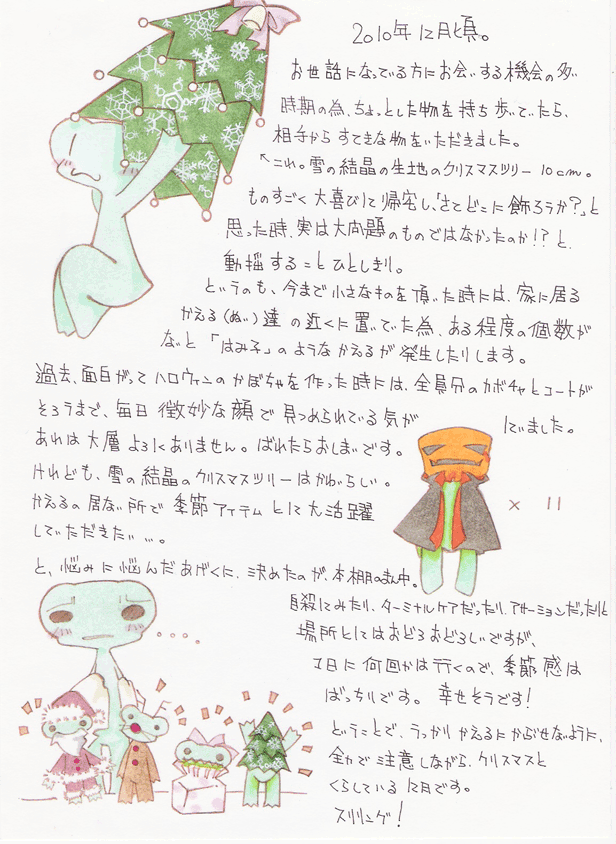 2010年12月頃。
お世話になっている方にお会いする機会の多い
時期の為、ちょっとした物を持ち歩いていたら、
相手からすてきな物をいただきました。
↖これ。雪の結晶の生地のクリスマスツリー10cm。
ものすごく大喜びして帰宅し、「さてどこに飾ろうか?」と
思った時、実は大問題のものではなかったのか!?と、
動揺することひとしきり。
というのも、今まで小さなものを頂いた時には、家に居る
かえる(ぬい)達の近くに置いていた為、ある程度の個数が
ないと「はみ子」のようなかえるが発生したりします。
過去、面白がってハロウィンのかぼちゃを作った時には、全員分のカボチャとコートが
そろうまで、毎日微妙な顔で見つめられている気が
していました。
あれは大層よろしくありません。ばれたらおしまいです。
けれども、雪の結晶のクリスマスツリーはかわいらしい。
かえるの居ない所で季節アイテムとして大活躍
していただきたい…。
× 11
と、悩みに悩んだあげくに、決めたのが、本棚のまん中。
自殺にみたり、ターミナルケアだったり、アサーションだったりと
場所としてはおどろおどろしいですが、
1日に何回かは行くので、季節感は
ばっちりです。幸せそうです!
ということで、うっかりかえるにからせないように、
全力で注意しながら、クリスマスと
くらしている12月です。
スリリング!